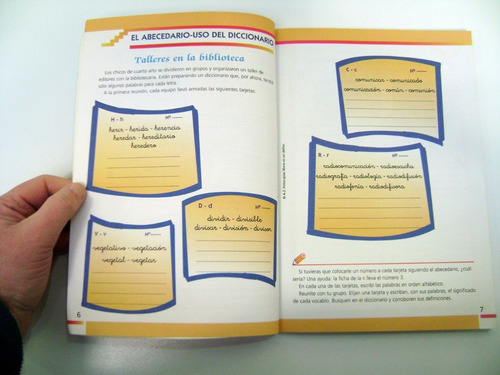 EL ABECEDARIO-USO DEL DICCIONARIO
Talleres en la biblioteca
Los chicos de cuarto año se dividieron en grupos y organizaron un taller de
editores con la bibliotecaria. Están preparando un diccionario que, por ahora, tendrá
sólo algunas palabras para cada letra.
A la primera reunión, cada equipo llevó armadas las siguientes tarjetas:
H - h Nº
herir - herida - herencia
heredar - hereditario
heredero
V - v Nº
vegetativo - vegetación
vegetal - vegetar
D - d Nº
dividir - divisible
divisar - división - divisor
6
C - c Nº
comunicar - comunicado
comunicación - común - comunión
R - r Nº
radiocomunicación - radioescucha
radiografía - radiología - radiodifusión
radiofonía - radiodifusora
Si tuvieras que colocarle un número a cada tarjeta siguiendo el abecedario, ¿cuál
sería? Una ayuda: la ficha de la c lleva el número 3.
En cada una de las tarjetas, escribí las palabras en orden alfabético.
Reunite con tu grupo. Elijan una tarjeta y escriban, con sus palabras, el significado
de cada vocablo. Busquen en el diccionario y corroboren sus definiciones.
7